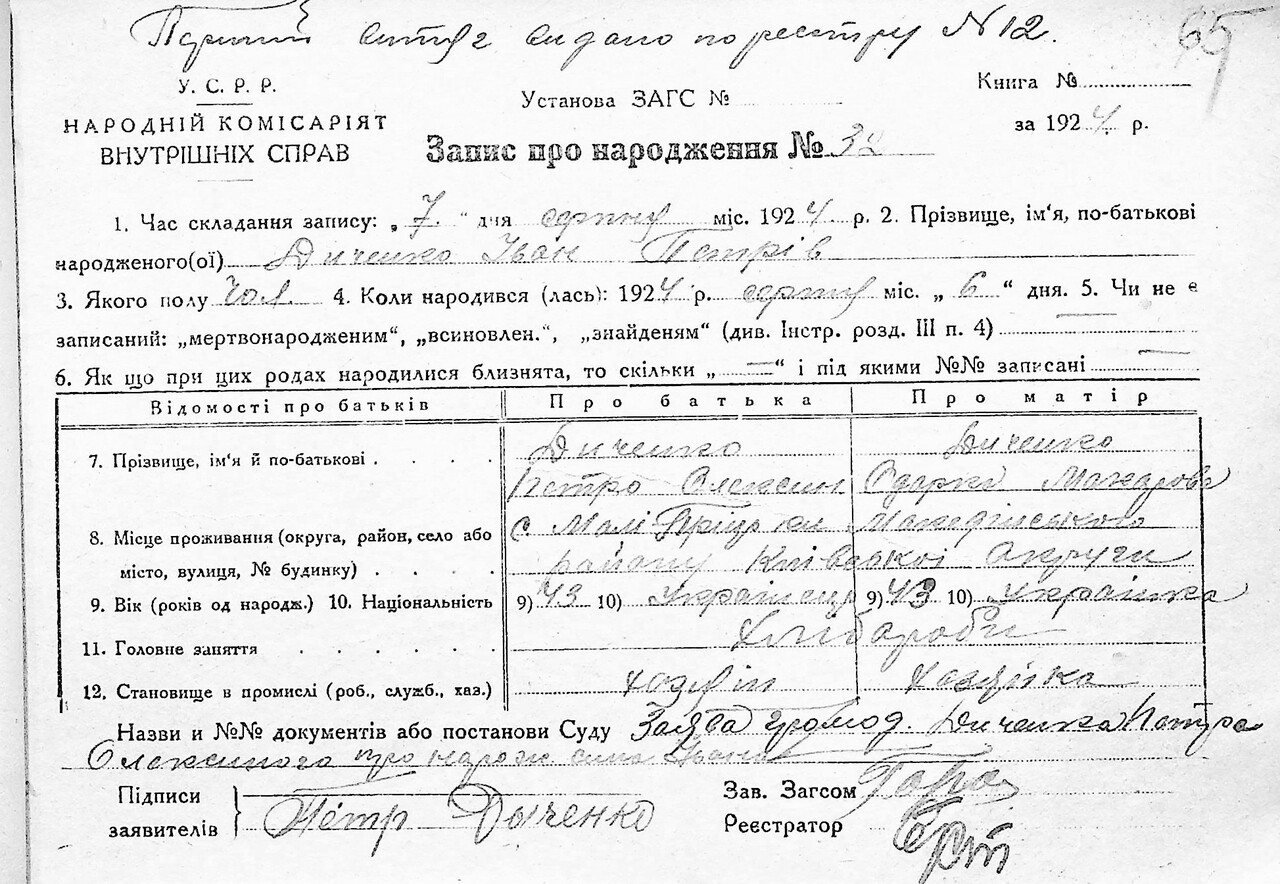 витяг видано по реєстру N 12.
65
У. С. Р. Р.
НАРОДНІЙ КОМІСАРІЯТ
ВНУТРІШНІХ СПРАВ
Установа ЗАГС №
Книга №
за 1924 р.
Запис про народження № 32
1. Час складання запису: „7“ дня серпня міс. 1924 р. 2. Прізвище, ім‘я, по-батькові
народженого(ої) Диченко Іван Петрів
3. Якого полу чол. 4. Коли народився (лась): 1924 р. серпня міс. „6“ дня. 5. Чи не є
записаний: „мертвонародженим“, „всиновлен.“, „знайденям“ (див. Інстр. розд. III п. 4)
6. Як що при цих родах народилися близнята, то скільки „—“ і під якими №№ записані —
Відомості про батьків Про батька Про матір
7. Прізвище, ім‘я й по-батькові . . . . Диченко Диченко
Петро Олексин Одарка Макарова
8. Місце проживання (округа, район, село або с. Малі Прицьки
місто, вулиця, № будинку) . . . . району Київської Округи
9. Вік (років од народж.) 10. Національність 9) 43 10) Українець 9) 43 10) Українка
11. Головне заняття . . . . . . Хлібороби
12. Становище в промислі (роб., служб., хаз.) хазяїн хазяйка
Назви и №№ документів або постанови Суду Заява громод. Диченка Петра
Олексиного про народж сина Івана
Підписи
заявителів
Петр Дыченко
Зав. Загсом
Реєстратор